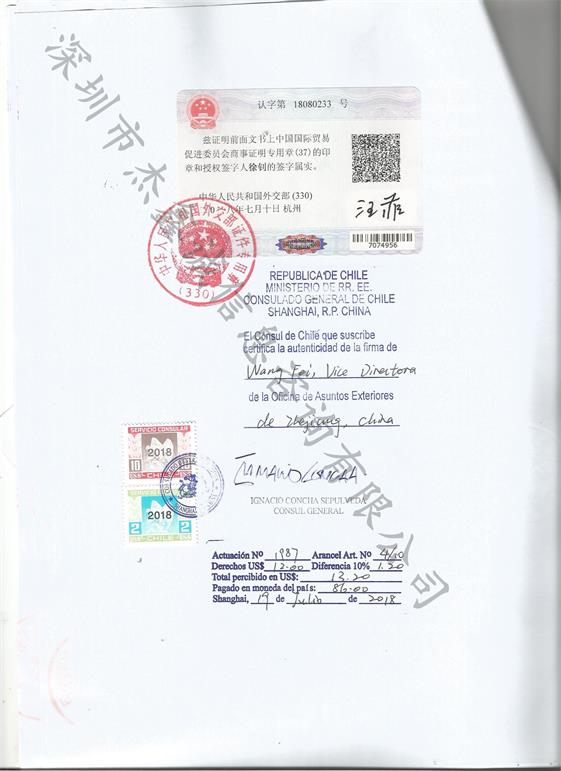 认字第 18080233 号
兹证明前面文书上中国国际贸易
促进委员会商事证明专用章(37)的印
章和授权签字人徐钊的签字属实。
中华人民共和国外交部(330)
年七月十日 杭州
汪菲
7074956
中华人民共和国外交部证件专用章
(330)
REPUBLICA DE CHILE
MINISTERIO DE RR. EE.
CONSULADO GENERAL DE CHILE
SHANGHAI, R.P. CHINA
El Cónsul de Chile que suscribe
certifica la autenticidad de la firma de
Wang Fei, Vice Directora
de la Oficina de Asuntos Exteriores
de Zhejiang, China
SERVICIO CONSULAR
2018
10
CHILE
2018
2 2
CHILE
IGNACIO CONCHA SEPULVEDA
CONSUL GENERAL
Actuación Nº 1987 Arancel Art. Nº 4/10
Derechos US$ 12.00 Diferencia 10% 1.20
Total percibido en US$: 13.20
Pagado en moneda del país: 86.00
Shanghai, 19 de Julio de 2018
深圳市杰 信息咨询有限公司